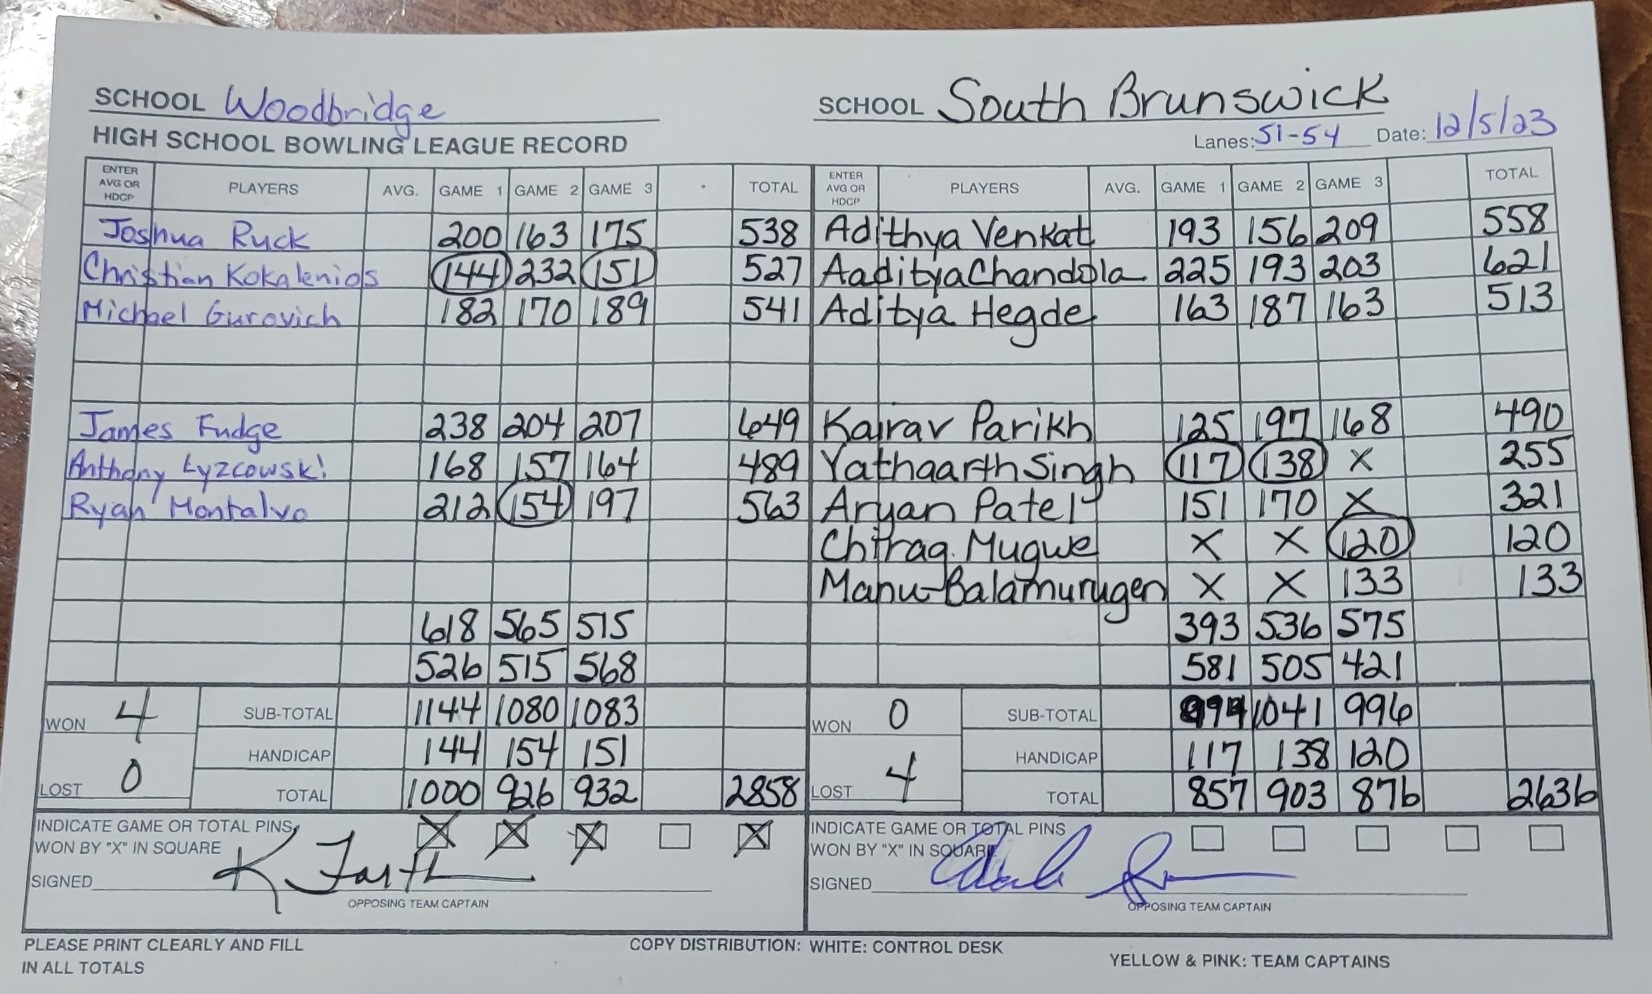 SCHOOL Woodbridge
SCHOOL South Brunswick
HIGH SCHOOL BOWLING LEAGUE RECORD
Lanes: 51-54 Date: 12/5/23
ENTER AVG OR HDCP PLAYERS AVG. GAME 1 GAME 2 GAME 3 TOTAL ENTER AVG OR HDCP PLAYERS AVG. GAME 1 GAME 2 GAME 3 TOTAL
Joshua Ruck 200 163 175 538 Adithya Venkat 193 156 209 558
Christian Kokalenios 144 232 151 527 Aaditya Chandola 225 193 203 621
Michael Gurovich 182 170 189 541 Aditya Hegde 163 187 163 513
James Fudge 238 204 207 649 Kairav Parikh 125 197 168 490
Anthony Lyzcowski 168 157 164 489 Yathaarth Singh 117 138 X 255
Ryan Montalvo 212 154 197 563 Aryan Patel 151 170 X 321
Chirag Mugwe X X 120 120
Manu-Balamurugen X X 133 133
618 565 515 393 536 575
526 515 568 581 505 421
WON 4 SUB-TOTAL 1144 1080 1083 WON 0 SUB-TOTAL 974 1041 996
HANDICAP 144 154 151 HANDICAP 117 138 120
LOST 0 TOTAL 1000 926 932 2858 LOST 4 TOTAL 857 903 876 2636
INDICATE GAME OR TOTAL PINS X X X X INDICATE GAME OR TOTAL PINS
WON BY "X" IN SQUARE WON BY "X" IN SQUARE
SIGNED K Farth SIGNED
OPPOSING TEAM CAPTAIN OPPOSING TEAM CAPTAIN
PLEASE PRINT CLEARLY AND FILL
IN ALL TOTALS
COPY DISTRIBUTION: WHITE: CONTROL DESK
YELLOW & PINK: TEAM CAPTAINS